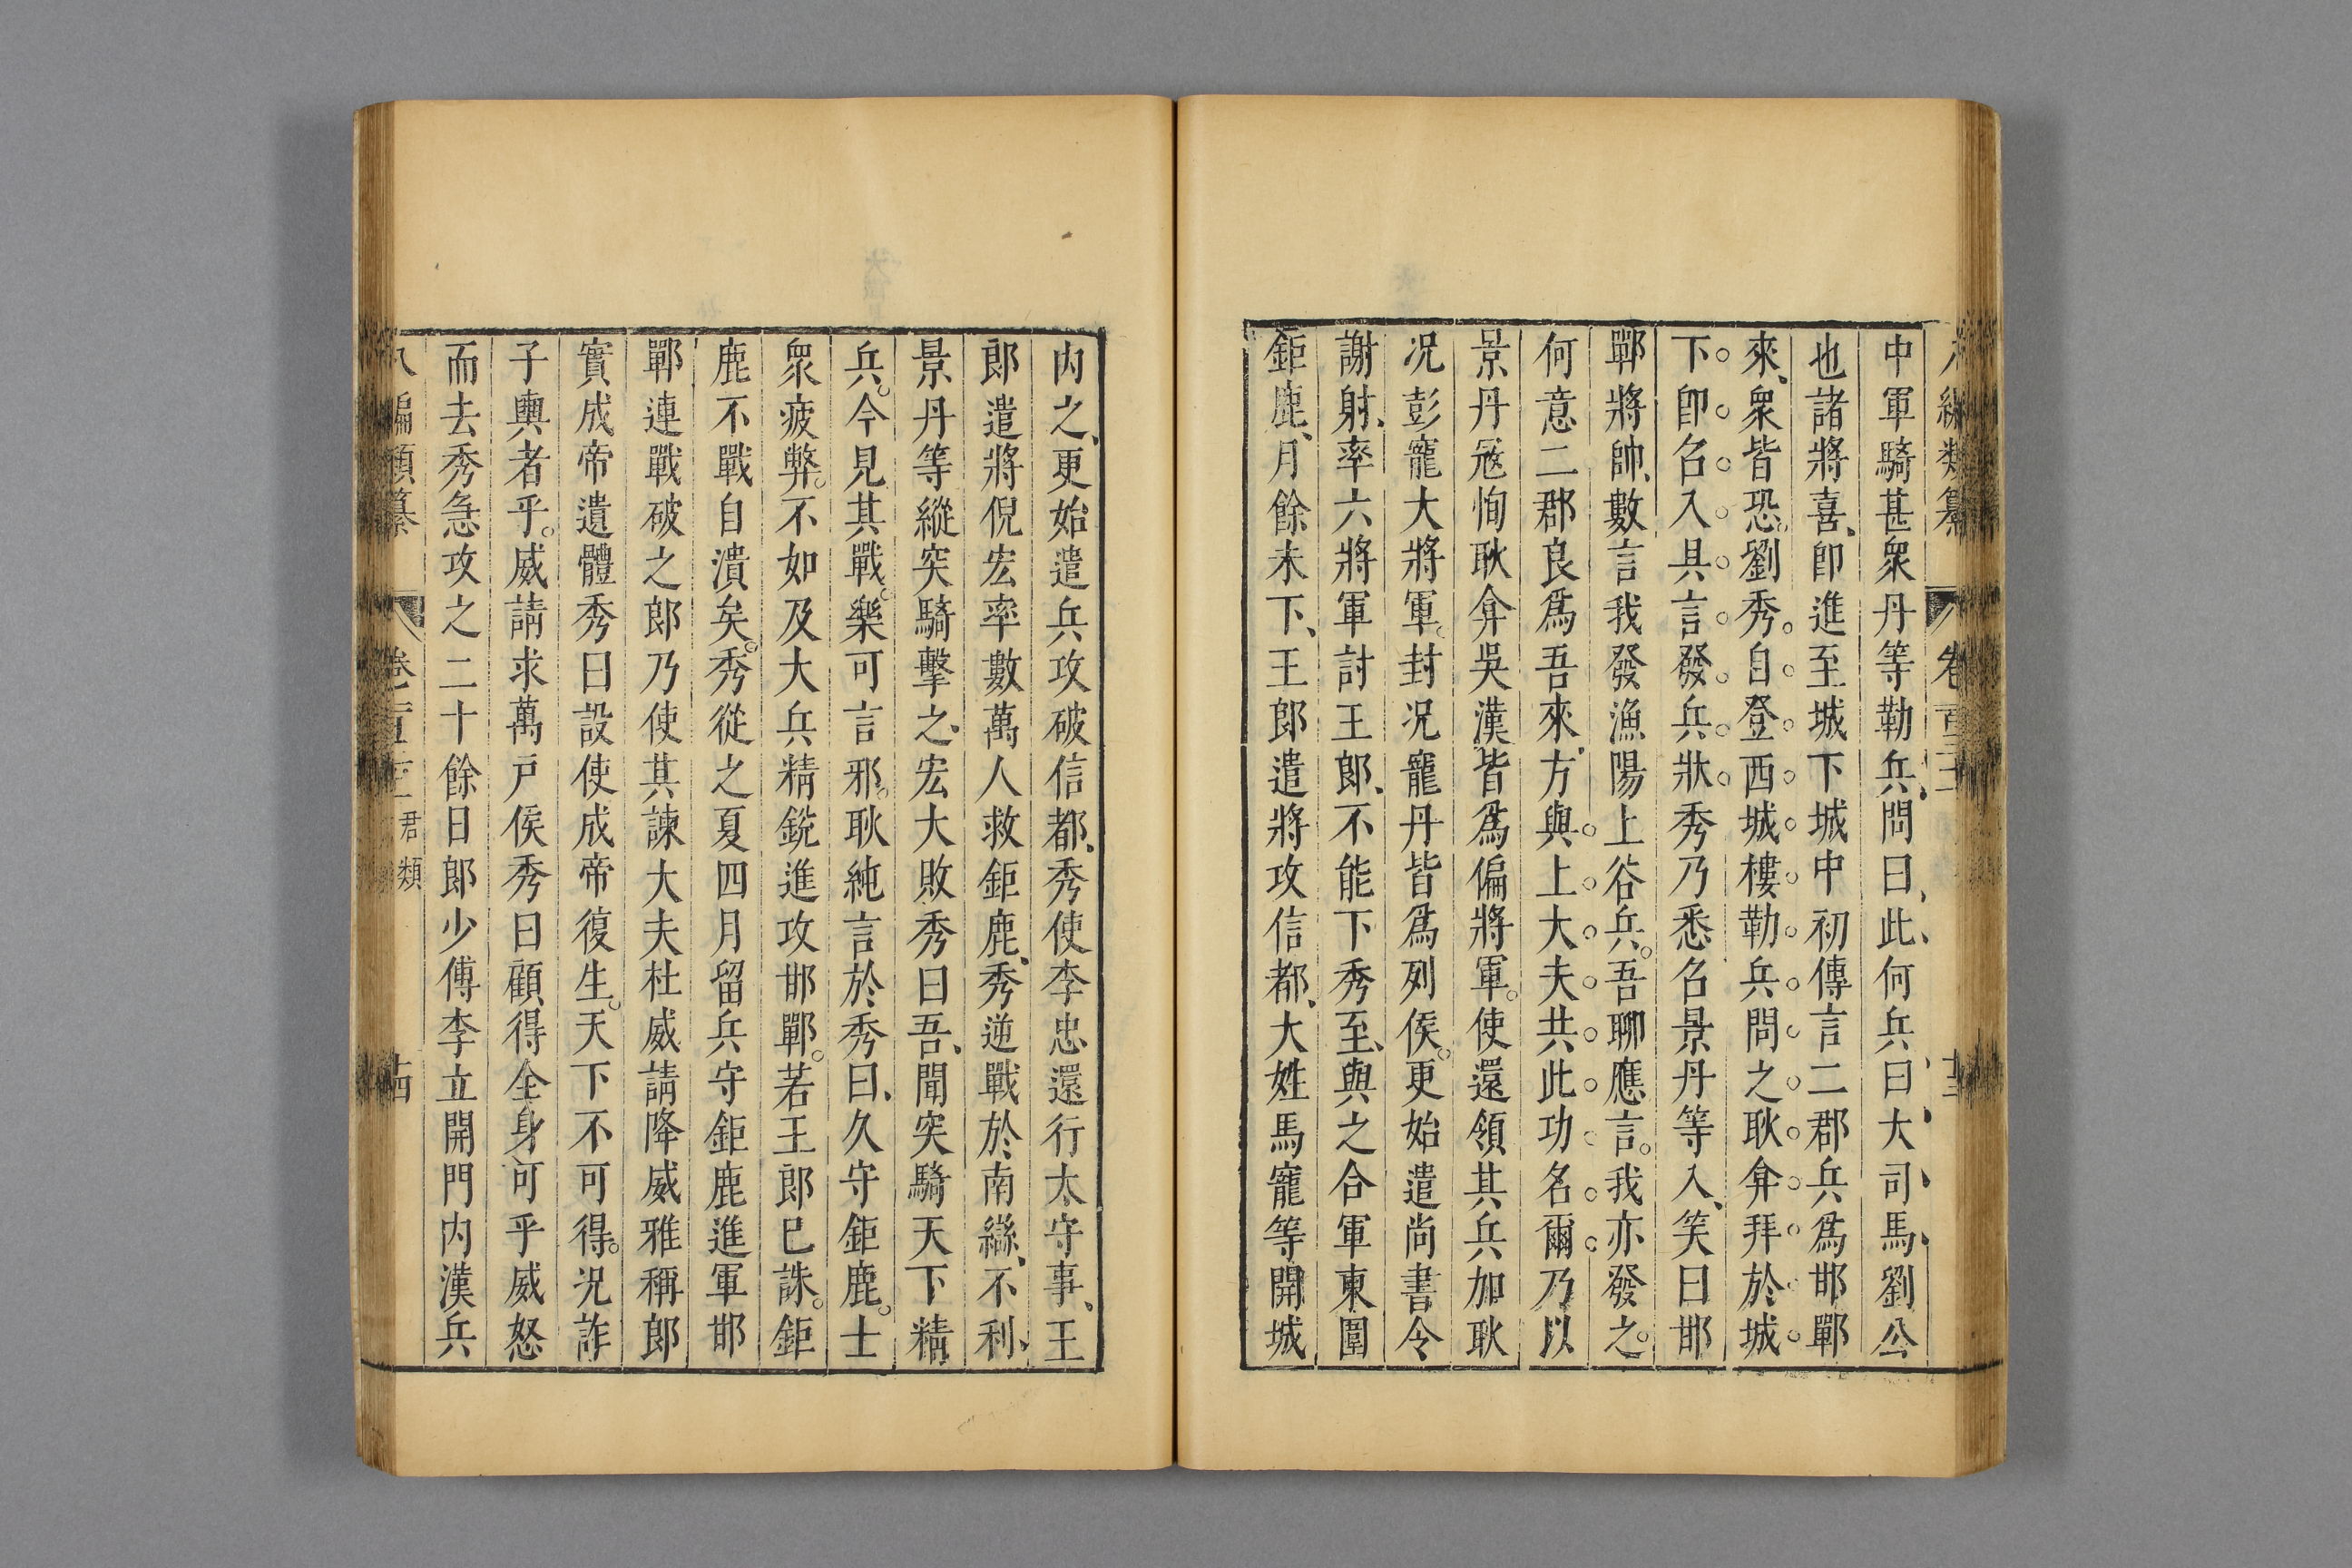 中軍騎甚衆丹等勒兵、問曰、此、何兵曰、大司馬劉公
也諸將喜、卽進至城下城中初傳言二郡兵爲邯鄲
來、衆皆恐。劉秀自登西城樓勒兵問之耿弇拜於城
下卽名入具言發兵狀秀乃悉名景丹等入、笑曰邯
鄲將帥、數言我發漁陽上谷兵。吾聊應言。我亦發之。
何意二郡良爲吾來、方與上大夫共此功名爾乃以
景丹宼恂耿弇吳漢皆爲偏將軍。使還領其兵加耿
况彭寵大將軍。封况寵丹皆爲列侯。更始遣尚書令
謝躬、率六將軍討王郎、不能下秀至、與之合軍東圍
鉅鹿、月餘未下、王郎遣將攻信都、大姓馬寵等開城
内之、更始遣兵攻破信都、秀使李忠還行太守事、王
郎遣將倪宏率數萬人救鉅鹿、秀逆戰於南䜌、不利、
景丹等縱突騎擊之、宏大敗秀曰吾、聞突騎天下精
兵。今見其戰。樂可言邪。耿純言於秀曰、久守鉅鹿。士
衆疲弊。不如及大兵精銳進攻邯鄲。若王郎巳誅。鉅
鹿不戰自潰矣。秀從之夏四月留兵守鉅鹿進軍邯
鄲連戰破之郎乃使其諫大夫杜威請降威雅稱郎
實成帝遺體秀曰設使成帝復生。天下不可得。况詐
子輿者乎。威請求萬戸侯秀曰顧得全身可乎威怒
而去秀急攻之二十餘日郎少傅李立開門内漢兵
八編類纂 卷一百三 君類 十四